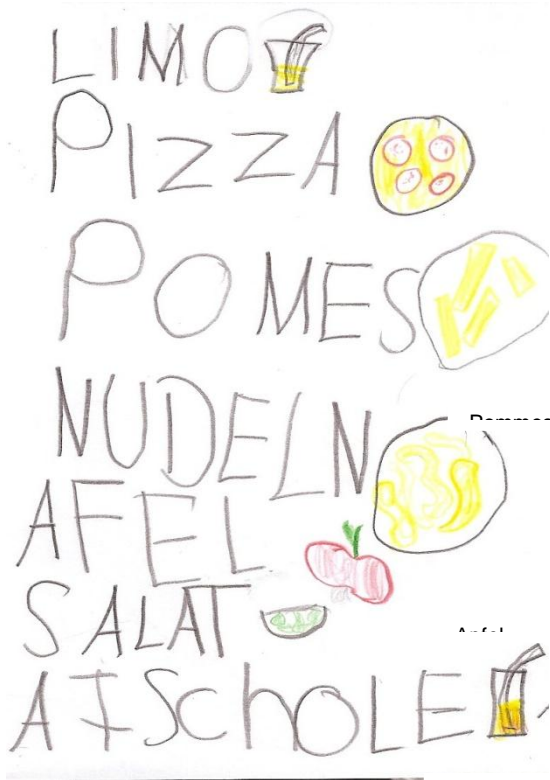 LIMO
PIZZA
POMES
NUDELN
AFEL
SALAT
AFSchOLE